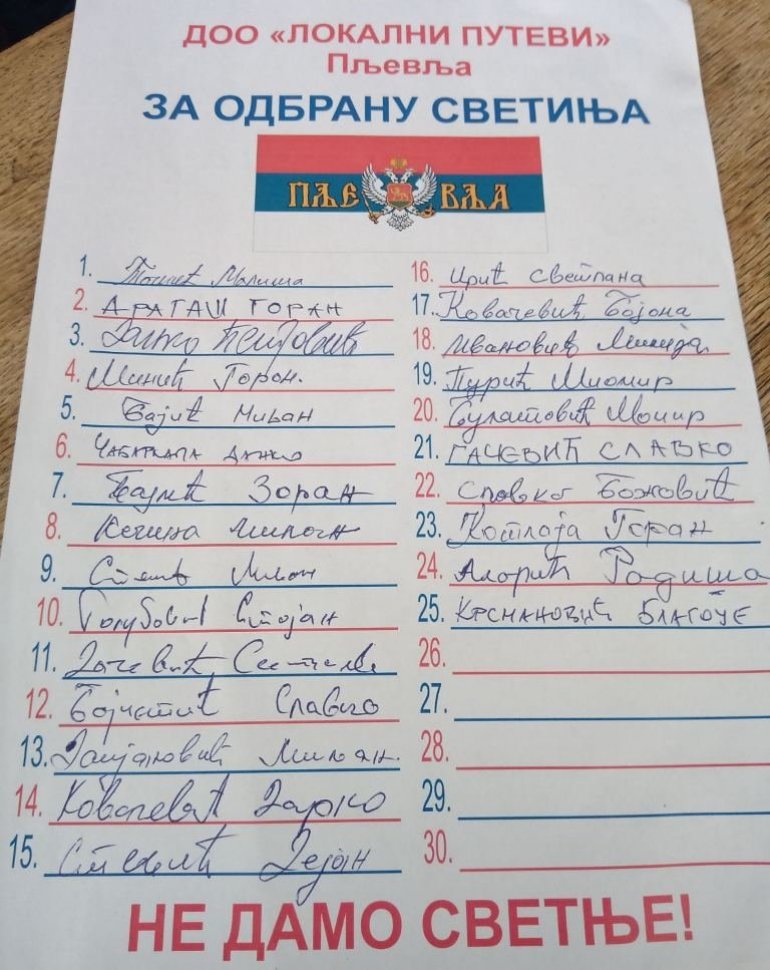 ДОО «ЛОКАЛНИ ПУТЕВИ»
Пљевља
ЗА ОДБРАНУ СВЕТИЊА
ПЉЕ ВЉА
1. Малиша
2. ДРАГАШ ГОРАН
3.
4. Минић Горан.
5. Бајић Милан
6. ЧАБАРКАПА ДАНКО
7. Зоран
8. Милоган
9. Милан
10. Голубовић Стојан
11.
12. Бојчетић Славко
13. Дамјановић Миљан.
14. Ковачевић Дарко
15. Дејан
16. Цријет Светлана
17. Ковачевић Бојана
18. Ивановић Милија
19. Пурић Миомир
20. Булатовић Момир
21. ГАЧЕВИЋ СЛАВКО
22. Славко Божовић
23. Горан
24. Радиша
25. КРСНАНОВИЋ БЛАГОЈЕ
26.
27.
28.
29.
30.
НЕ ДАМО СВЕТЊЕ!